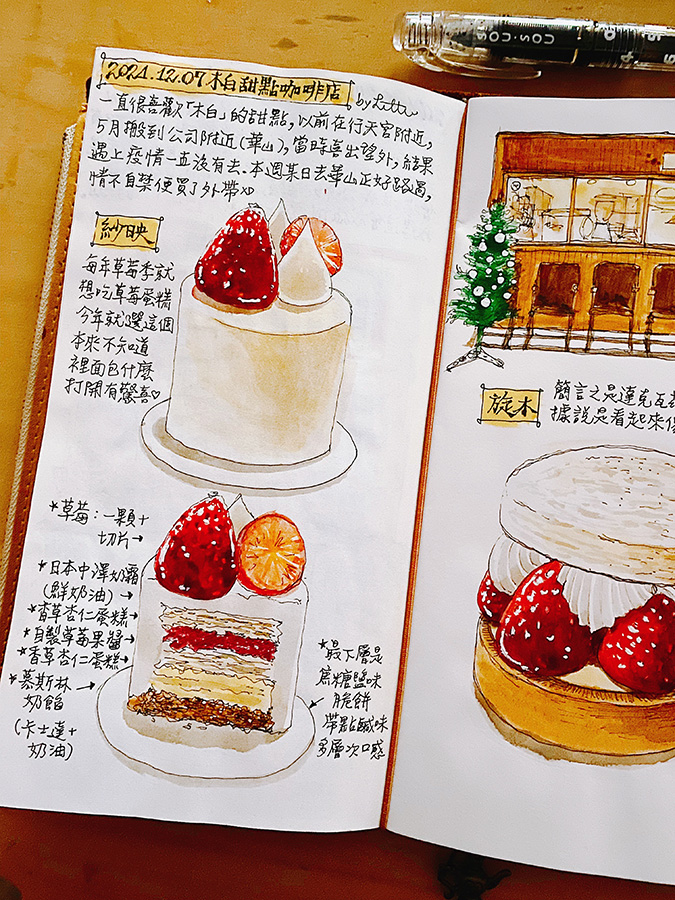 SOU·SOU
2021.12.07 木白甜點咖啡店
一直很喜歡「木白」的甜點,以前在行天宮附近,
5月搬到公司附近(華山),當時喜出望外,結果
遇上疫情一直沒有去.本週某日去華山正好路過,
情不自禁便買了外帶
紗映
每年草莓季就
想吃草莓蛋糕
今年就選這個
本來不知道
裡面包什麼
打開有驚喜♡
*草莓:一顆+
切片→
*日本中澤奶霜
(鮮奶油)→
*香草杏仁蛋糕→
*自製草莓果醬→
*香草杏仁蛋糕→
*慕斯林→
奶餡
(卡士達+
奶油)
*最下層是
焦糖鹽味
脆餅
帶點鹹味
多層次口感
旋木
簡言之是達克瓦
據說是看起來像